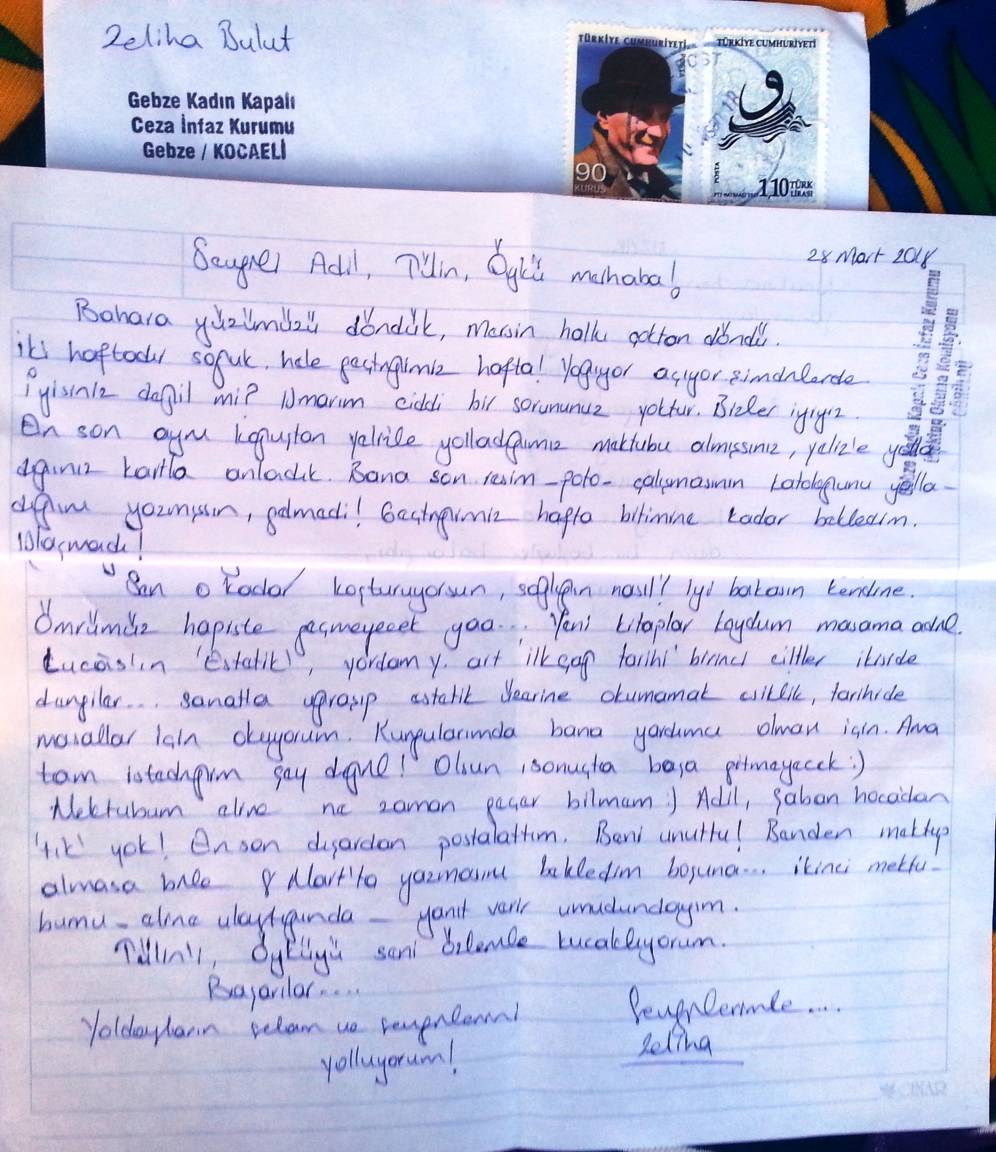 Zeliha Bulut
Gebze Kadın Kapalı
Ceza İnfaz Kurumu
Gebze / KOCAELİ
TÜRKİYE CUMHURİYETİ
90
KURUŞ
TÜRKİYE CUMHURİYETİ
POSTA
1,10 TÜRK
LİRASI
28 Mart 2018
Sevgili Adil, Tülin, Öykü merhaba!
Bahara yüzümüzü döndük, Mersin halkı çoktan döndü.
iki haftadır soğuk, hele geçtiğimiz hafta! Yağıyor açıyor şimdilerde.
İyisiniz değil mi? Umarım ciddi bir sorununuz yoktur. Bizler iyiyiz.
En son aynı koğuştan yolladığımız mektubu almışsınız,
dğınız kartla anladık. Bana son resim -foto- çalışmasının kataloğunu yolla-
dığını yazmışsın, gelmedi! Geçtiğimiz hafta bitimine kadar bekledim.
Ulaşmadı!
Sen o kadar koşturuyorsun, sağlığın nasıl? İyi bakasın kendine.
Ömrümüz hapiste geçmeyecek yaa... Yeni kitaplar koydum masama
'Estetik', 'ilkçağ tarihi' birinci ciltler ikiside
sanatla uğraşıp estetik üzerine okumamak eksiklik, tarihide
masallar için okuyorum. Kurgularımda bana yardımcı olması için. Ama
tam istediğim şey değil! Olsun, sonuçta boşa gitmeyecek :)
Mektubum eline ne zaman geçer bilmem :) Adil, Şaban hocadan
'tık' yok! En son dışardan postalattım. Beni unuttu! Benden mektup
almasa bile 8 Mart'ta yazmasını bekledim boşuna... ikinci mektu-
bumu - eline ulaştığında - yanıt verir umudundayım.
Tülin'i, Öykü'yü seni özlemle kucaklıyorum.
Başarılar....
Yoldaşların selam ve sevgilerini
yolluyorum!
Sevgilerimle....
Zeliha
Gebze Kadın Kapalı Ceza İnfaz Kurumu
Mektup Okuma Komisyonu
ÇINAR